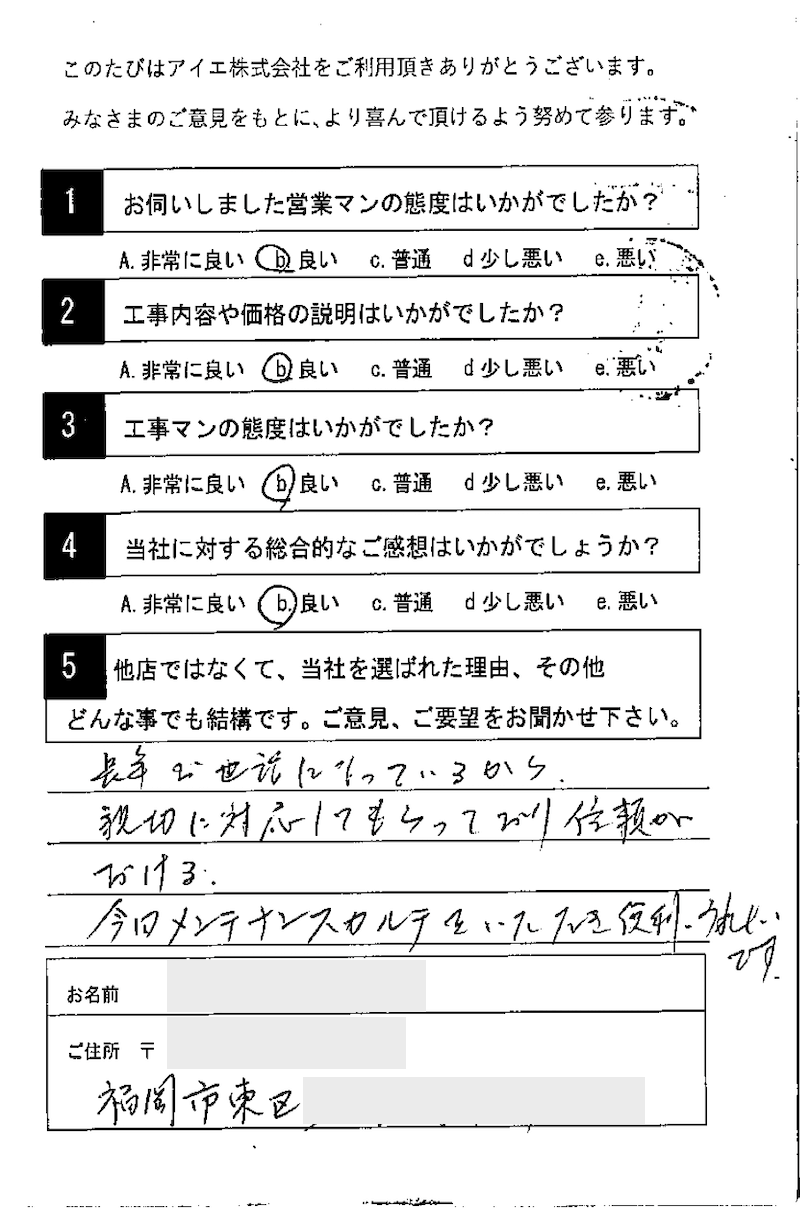 このたびはアイエ株式会社をご利用頂きありがとうございます。
みなさまのご意見をもとに、より喜んで頂けるよう努めて参ります。
1 お伺いしました営業マンの態度はいかがでしたか？
A. 非常に良い b. 良い c. 普通 d 少し悪い e. 悪い
2 工事内容や価格の説明はいかがでしたか？
A. 非常に良い b 良い c. 普通 d 少し悪い e. 悪い
3 工事マンの態度はいかがでしたか？
A. 非常に良い b 良い c. 普通 d 少し悪い e. 悪い
4 当社に対する総合的なご感想はいかがでしょうか？
A. 非常に良い b. 良い c. 普通 d 少し悪い e. 悪い
5 他店ではなくて、当社を選ばれた理由、その他
どんな事でも結構です。ご意見、ご要望をお聞かせ下さい。
長年お世話になっているから.
親切に対応してもらっており信頼が
おける.
今日メンテナンスカルテをいただき便利.うれしい
です.
お名前
ご住所 〒
福岡市東区